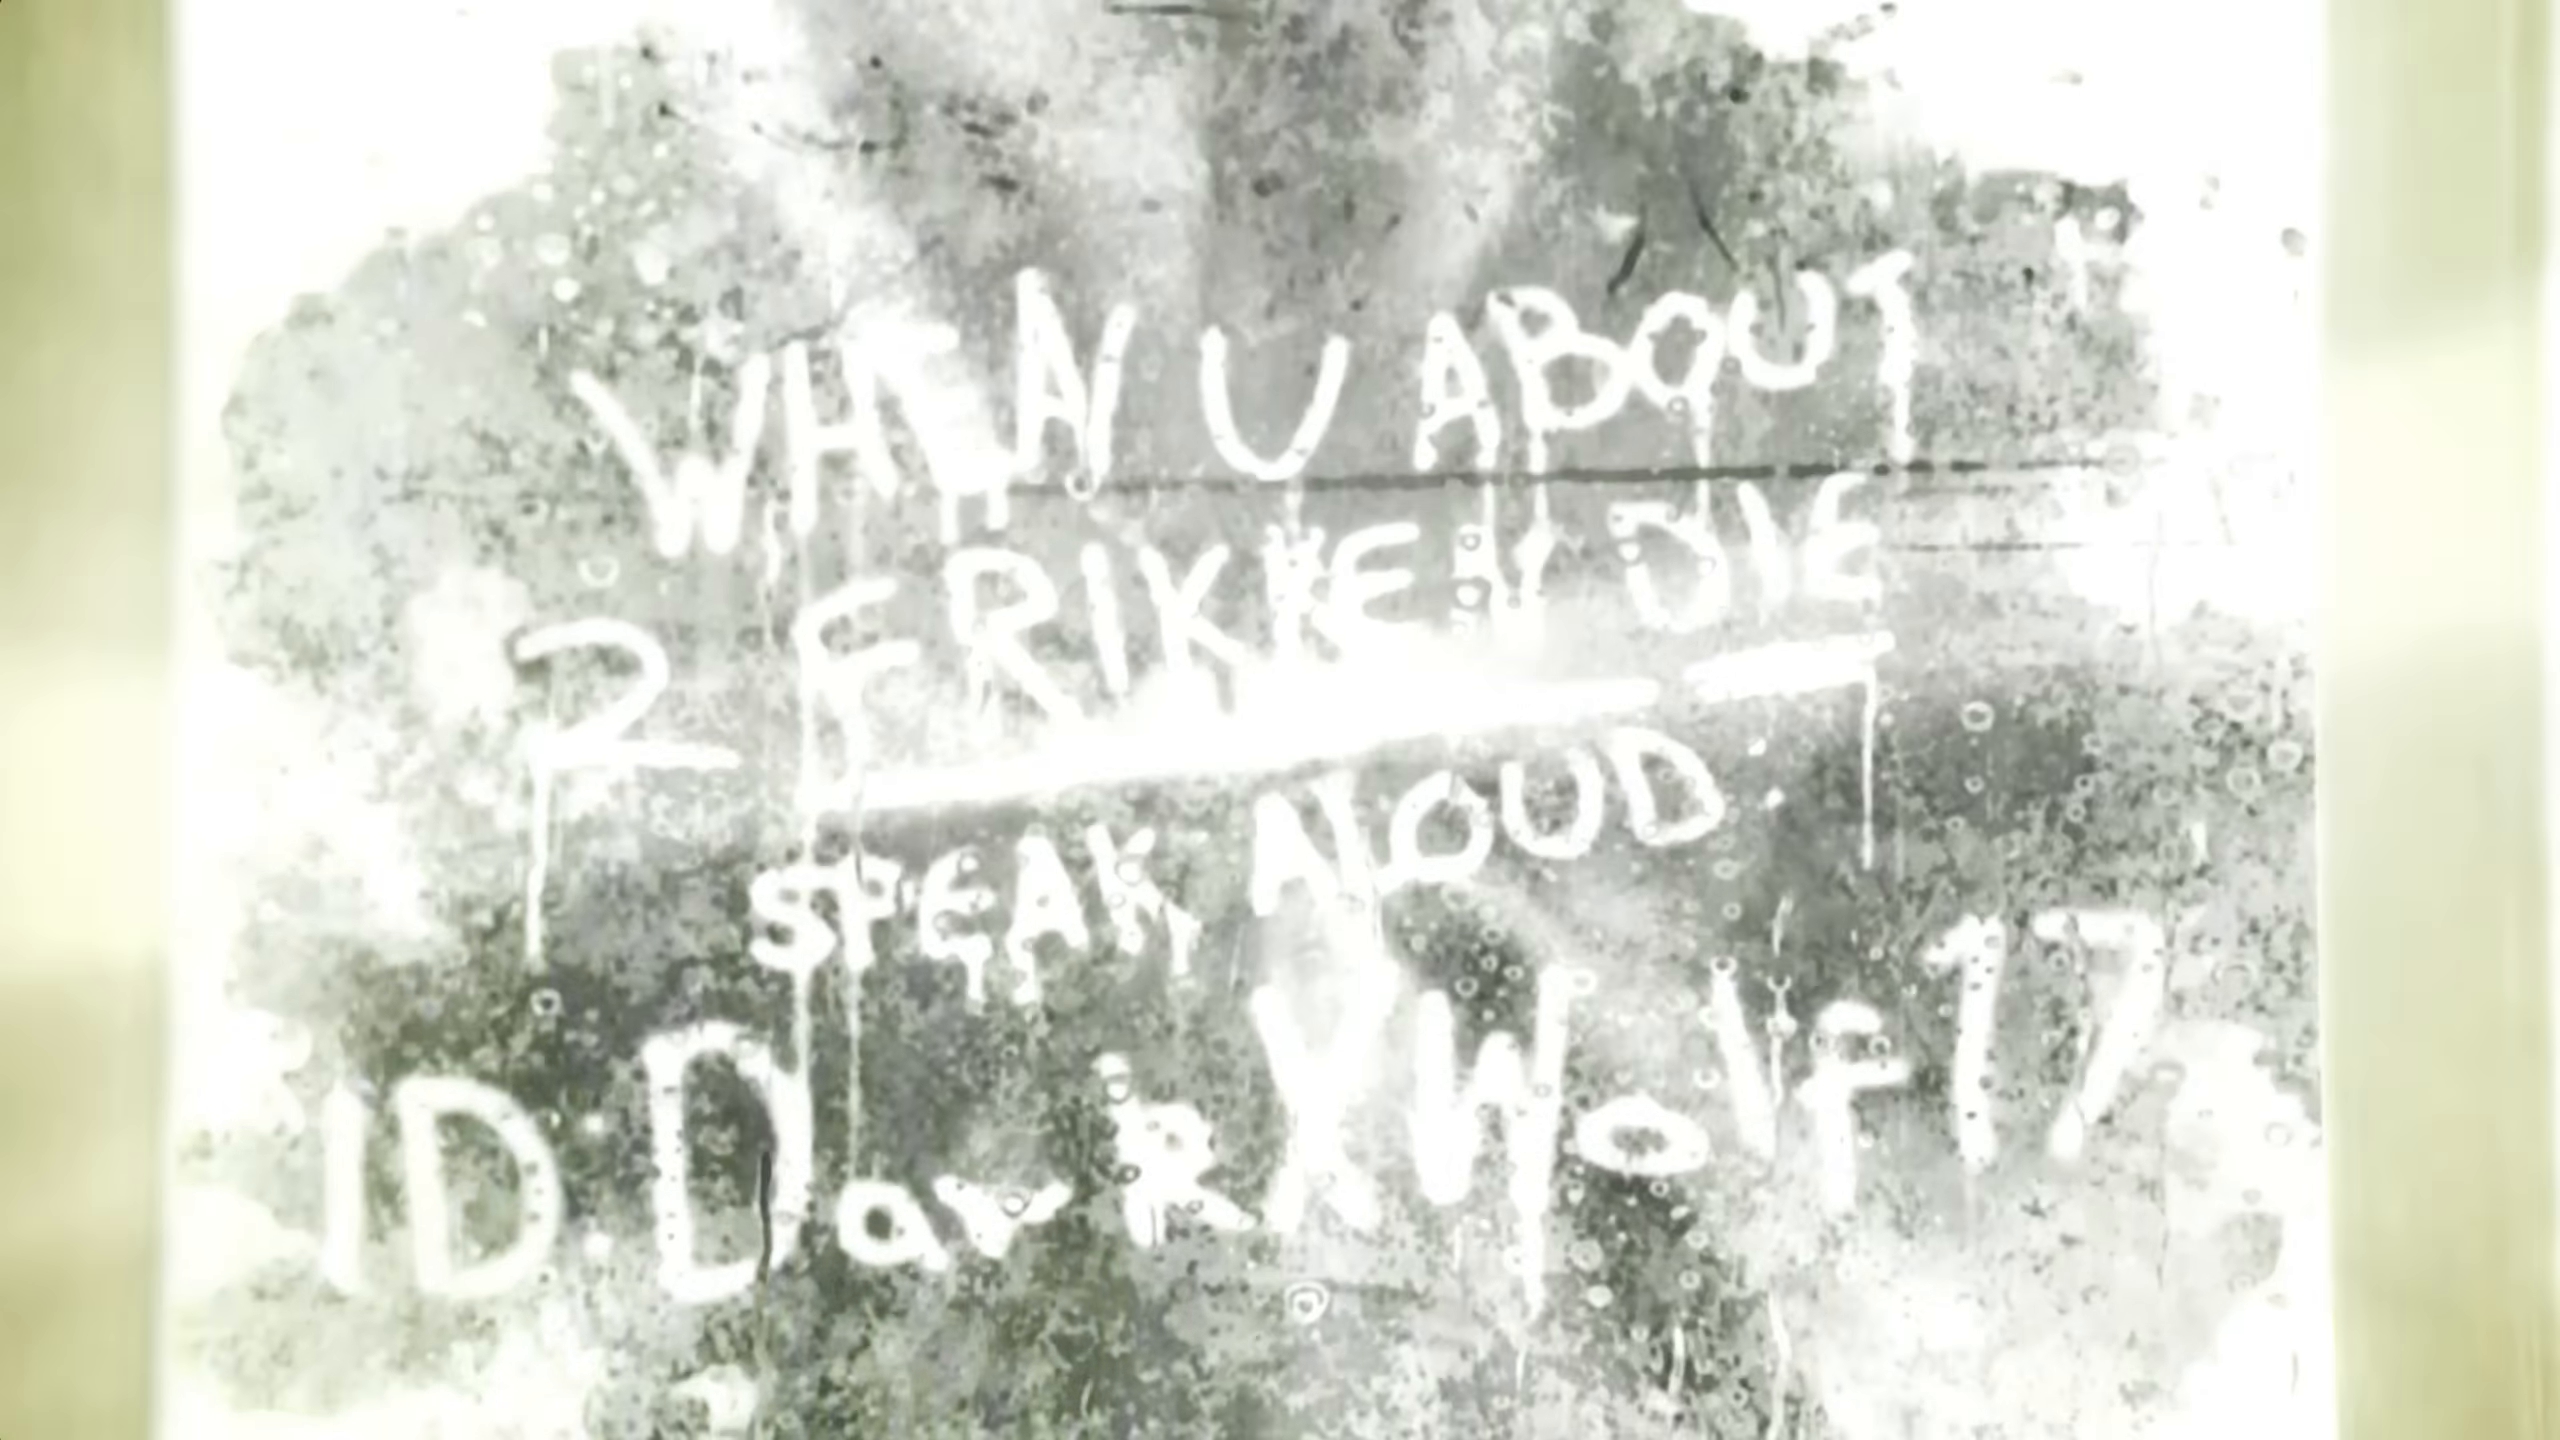 WHEN U ABOUT
2 FRIKKEN DIE
SPEAK ALOUD
ID DarkXWolf17